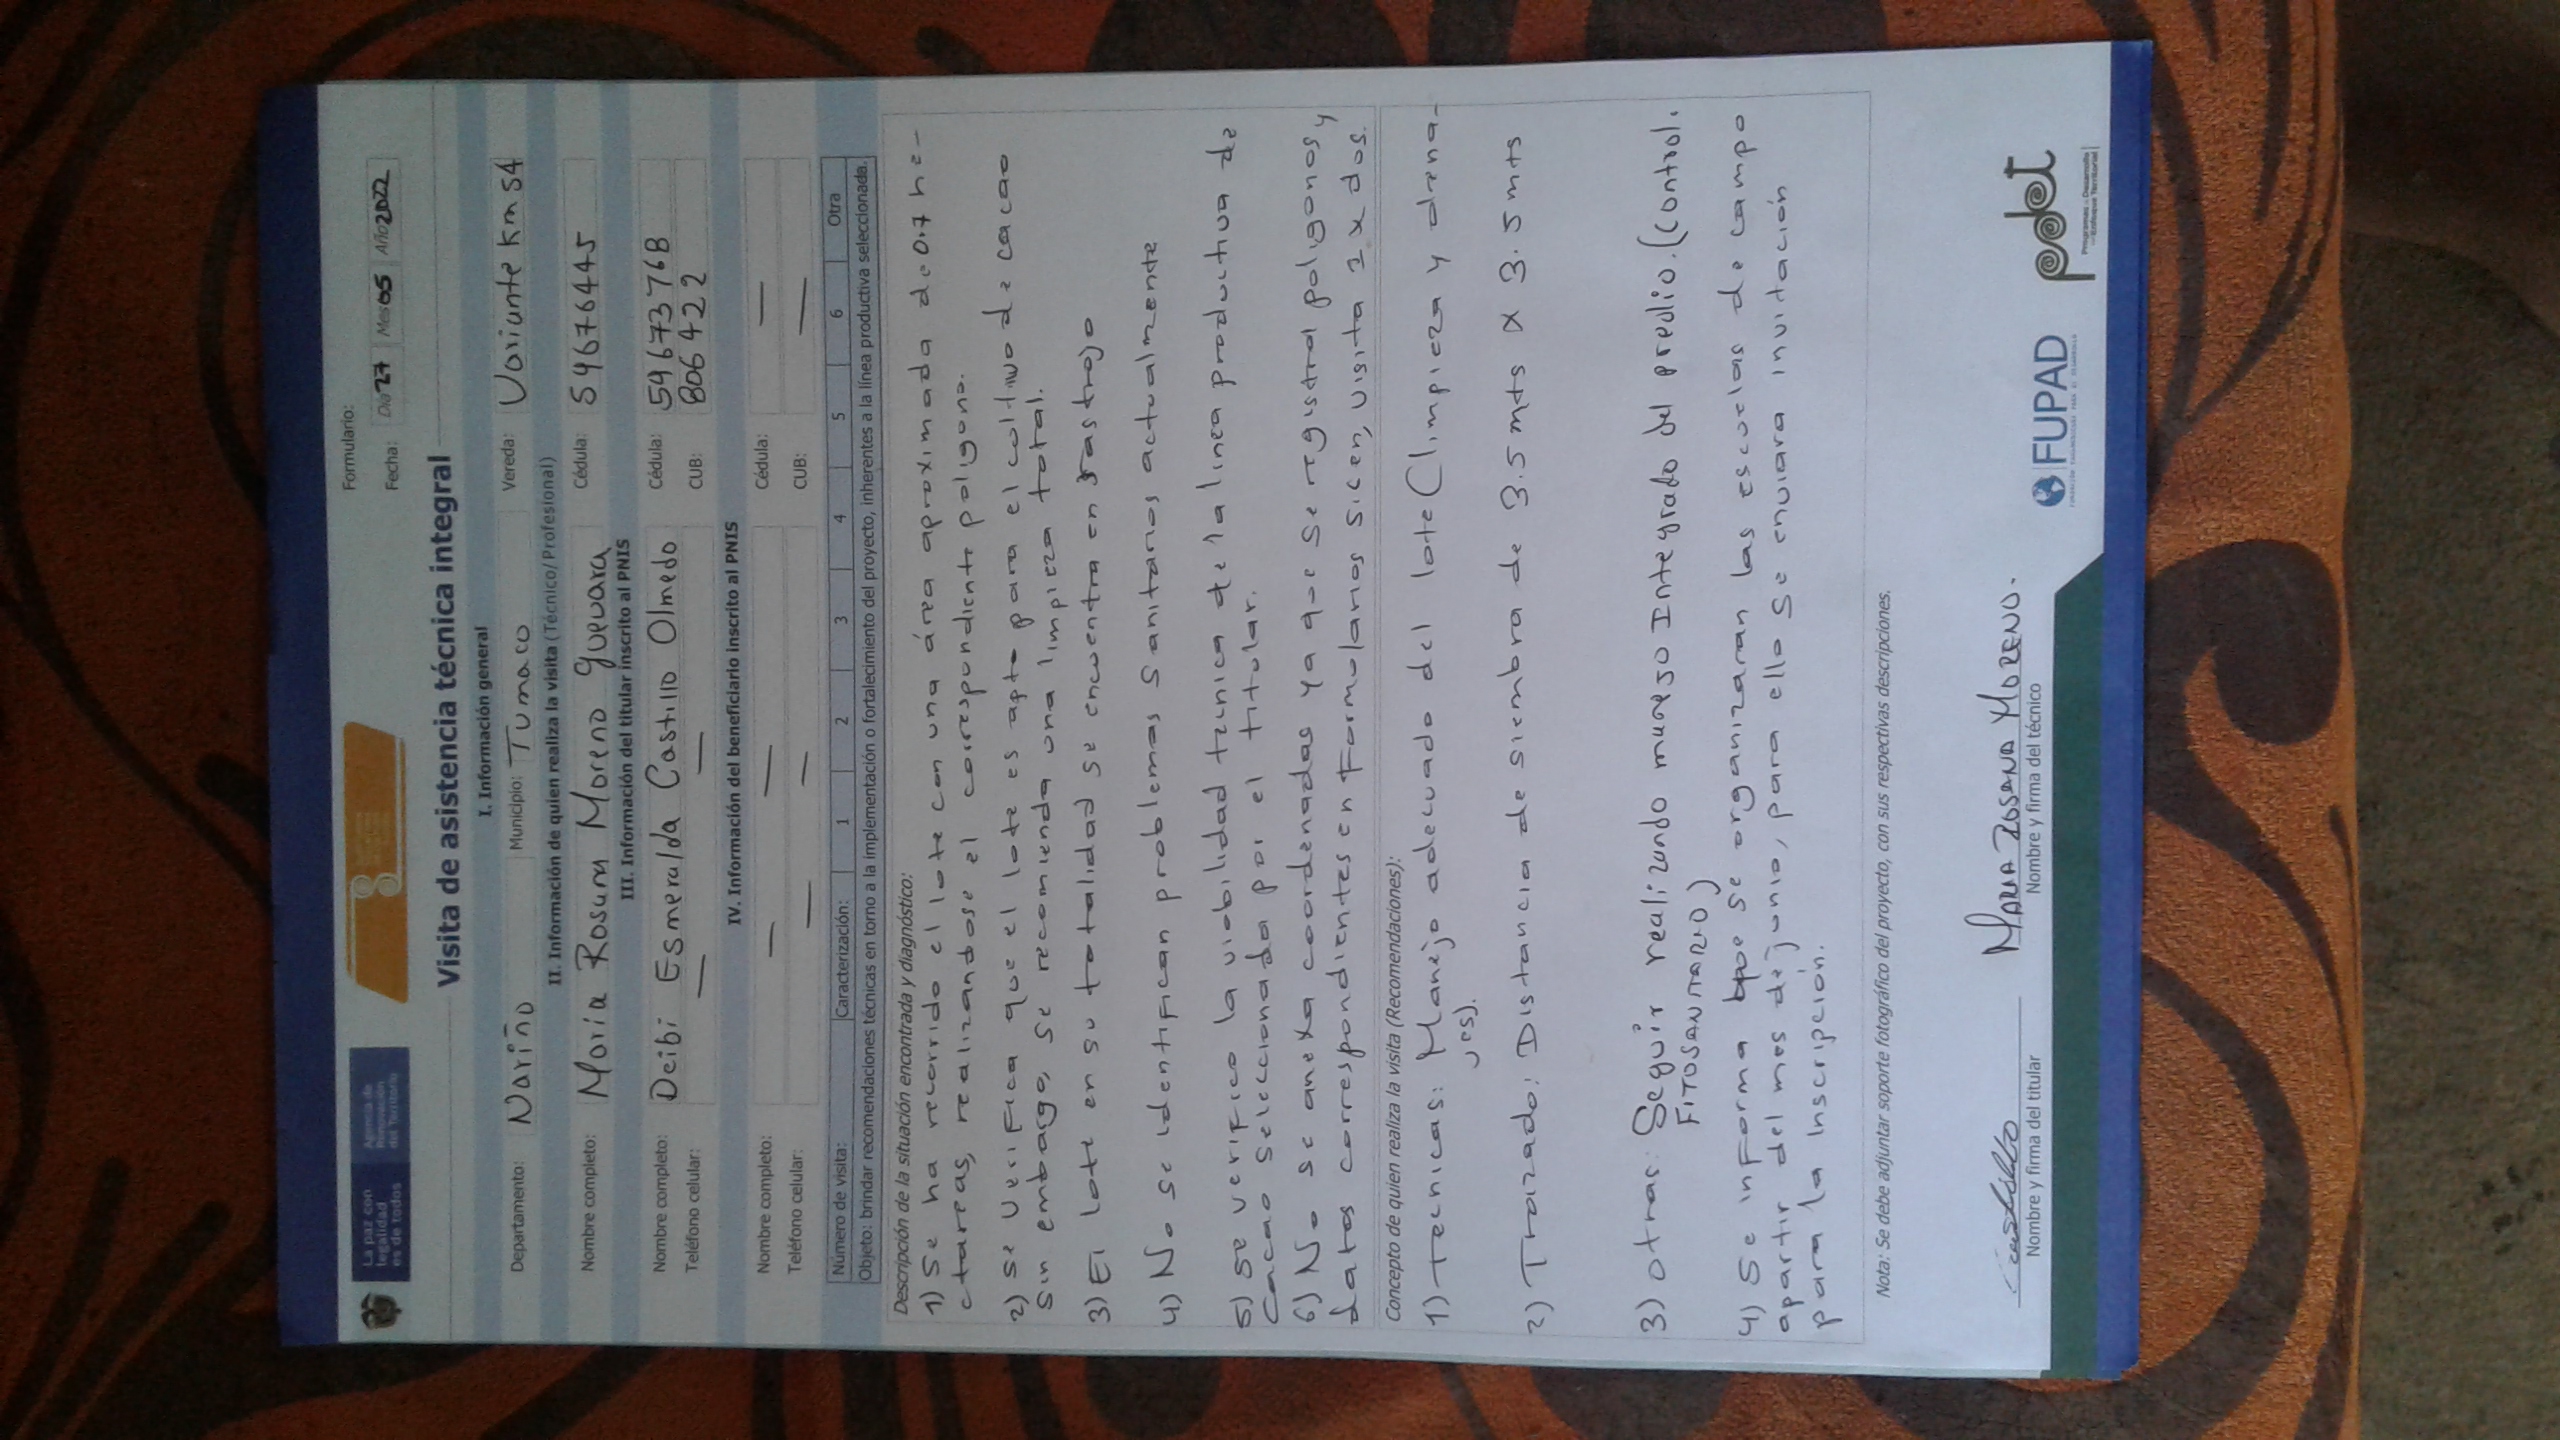 La paz con
legalidad
es de todos
Agencia de
Renovación
del Territorio
Formulario:
Fecha: Día 27 Mes 05 Año 2022
Visita de asistencia técnica integral
I. Información general
Departamento: Nariño Municipio: Tumaco Vereda: Variante km 54
II. Información de quien realiza la visita (Técnico/Profesional)
Nombre completo: Maria Rosura Moreno Guevara Cédula: 59676445
III. Información del titular inscrito al PNIS
Nombre completo: Deibi Esmeralda Castillo Olmedo Cédula: 59673768
Teléfono celular: — — CUB: 806422
IV. Información del beneficiario inscrito al PNIS
Nombre completo: — — Cédula: —
Teléfono celular: — — CUB: —
Número de visita: Caracterización: 1 2 3 4 5 6 Otra
Objeto: brindar recomendaciones técnicas en torno a la implementación o fortalecimiento del proyecto, inherentes a la línea productiva seleccionada.
Descripción de la situación encontrada y diagnóstico:
1) Se ha recorrido el lote con una área aproximada de 0.7 he-
ctareas, realizandose el correspondiente poligono.
2) se verifica que el lote es apto para el cultivo de cacao
sin embargo, se recomienda una limpieza total.
3) El lote en su totalidad se encuentra en rastrojo
4) No se identifican problemas sanitarios actualmente
5) se verifico la viabilidad tecnica de la linea productiva de
cacao seleccionada por el titular.
6) No se anexa coordenadas ya que se registral poligonos y
datos correspondientes en formularios sicen, visita 1 x dos.
Concepto de quien realiza la visita (Recomendaciones):
1) tecnicas: Manejo adecuado del lote (limpieza y drena-
jes).
2) Trazado: Distancia de siembra de 3.5 mts x 3.5 mts
3) otras: Seguir realizando manejo Integrado del predio. (control.
FITOSANITARIO)
4) Se informa que se organizaran las escuelas de campo
apartir del mes de junio, para ello se enviara invitación
para la inscripción.
Nota: Se debe adjuntar soporte fotográfico del proyecto, con sus respectivas descripciones.
Castillo
MARIA ROSANA MORENO.
Nombre y firma del titular
Nombre y firma del técnico
FUPAD
pdet
Programas de Desarrollo
con Enfoque Territorial